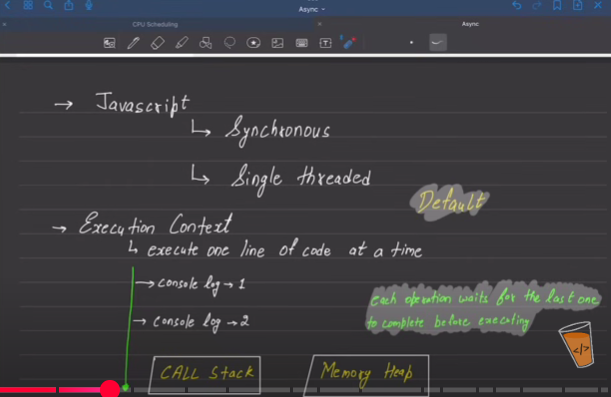 Async
CPU Scheduling
Async
→ Javascript
↳ Synchronous
↳ Single threaded
Default
→ Execution Context
↳ execute one line of code at a time
→ console log → 1
→ console log → 2
each operation waits for the last one
to complete before executing
</>
CALL Stack
Memory Heap